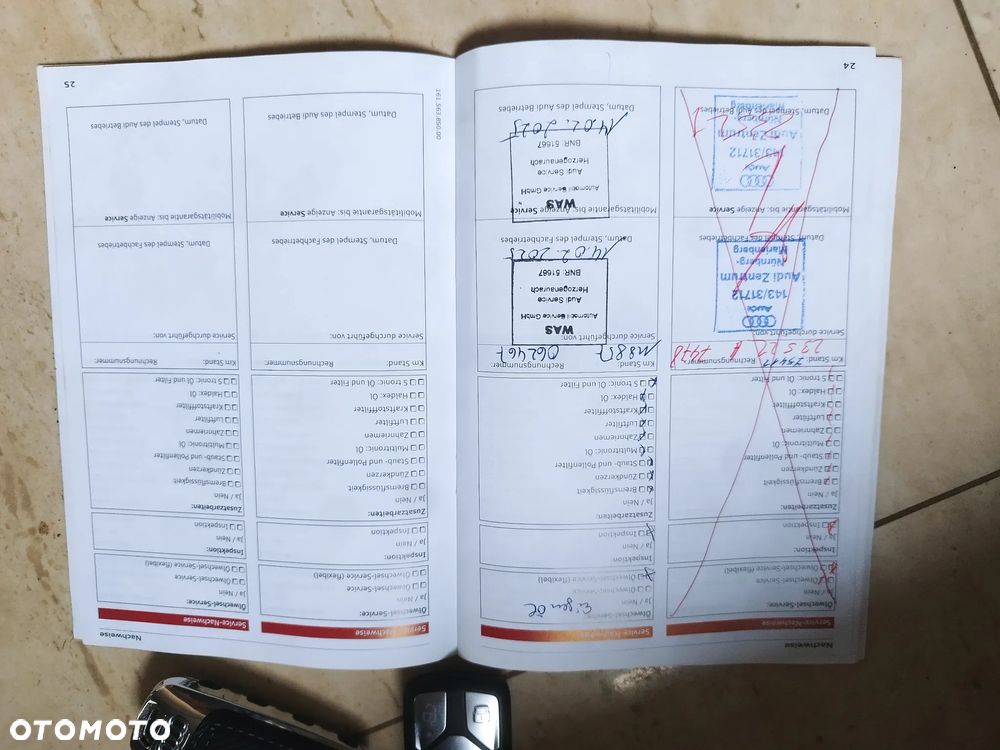 Nachweise
Service-Nachweise
Ölwechsel-Service:
Ja / Nein
Ölwechsel-Service
Ölwechsel-Service (flexibel)
Inspektion:
Ja / Nein
Inspektion
Zusatzarbeiten:
Ja / Nein
Bremsflüssigkeit
Zündkerzen
Staub- und Pollenfilter
Multitronic: Öl
Zahnriemen
Luftfilter
Kraftstofffilter
Haldex: Öl
S tronic: Öl und Filter
Km Stand:
Rechnungsnummer
Service durchgeführt von:
Audi
143/31712
Audi Zentrum
Nürnberg-
Marienberg
Datum, Stempel des Fachbetriebes
Mobilitätsgarantie bis: Anzeige Service
Audi
143/31712
Audi Zentrum
Nürnberg-
Marienberg
Datum, Stempel des Audi Betriebes
24
Service-Nachweise
Ölwechsel-Service:
Eigen Öl
Ja / Nein
Ölwechsel-Service
Ölwechsel-Service (flexibel)
Inspektion:
Ja / Nein
Inspektion
Zusatzarbeiten:
Ja / Nein
Bremsflüssigkeit
Zündkerzen
Staub- und Pollenfilter
Multitronic: Öl
Zahnriemen
Luftfilter
Kraftstofffilter
Haldex: Öl
S tronic: Öl und Filter
Km Stand: 118857
Rechnungsnummer: 062467
Service durchgeführt von:
WAS
Automobil Service GmbH
Audi Service
Herzogenaurach
BNR: 51667
14.02.2025
Datum, Stempel des Fachbetriebes
Mobilitätsgarantie bis: Anzeige Service
WAS
Automobil Service GmbH
Audi Service
Herzogenaurach
BNR: 51667
14.02.2025
Datum, Stempel des Audi Betriebes
161.563.850.00
Nachweise
Service-Nachweise
Ölwechsel-Service:
Ja / Nein
Ölwechsel-Service
Ölwechsel-Service (flexibel)
Inspektion:
Ja / Nein
Inspektion
Zusatzarbeiten:
Ja / Nein
Bremsflüssigkeit
Zündkerzen
Staub- und Pollenfilter
Multitronic: Öl
Zahnriemen
Luftfilter
Kraftstofffilter
Haldex: Öl
S tronic: Öl und Filter
Km Stand:
Rechnungsnummer:
Service durchgeführt von:
Datum, Stempel des Fachbetriebes
Mobilitätsgarantie bis: Anzeige Service
Datum, Stempel des Audi Betriebes
Service-Nachweise
Ölwechsel-Service:
Ja / Nein
Ölwechsel-Service
Ölwechsel-Service (flexibel)
Inspektion:
Ja / Nein
Inspektion
Zusatzarbeiten:
Ja / Nein
Bremsflüssigkeit
Zündkerzen
Staub- und Pollenfilter
Multitronic: Öl
Zahnriemen
Luftfilter
Kraftstofffilter
Haldex: Öl
S tronic: Öl und Filter
Km Stand:
Rechnungsnummer:
Service durchgeführt von:
Datum, Stempel des Fachbetriebes
Mobilitätsgarantie bis: Anzeige Service
Datum, Stempel des Audi Betriebes
25
OTOMOTO